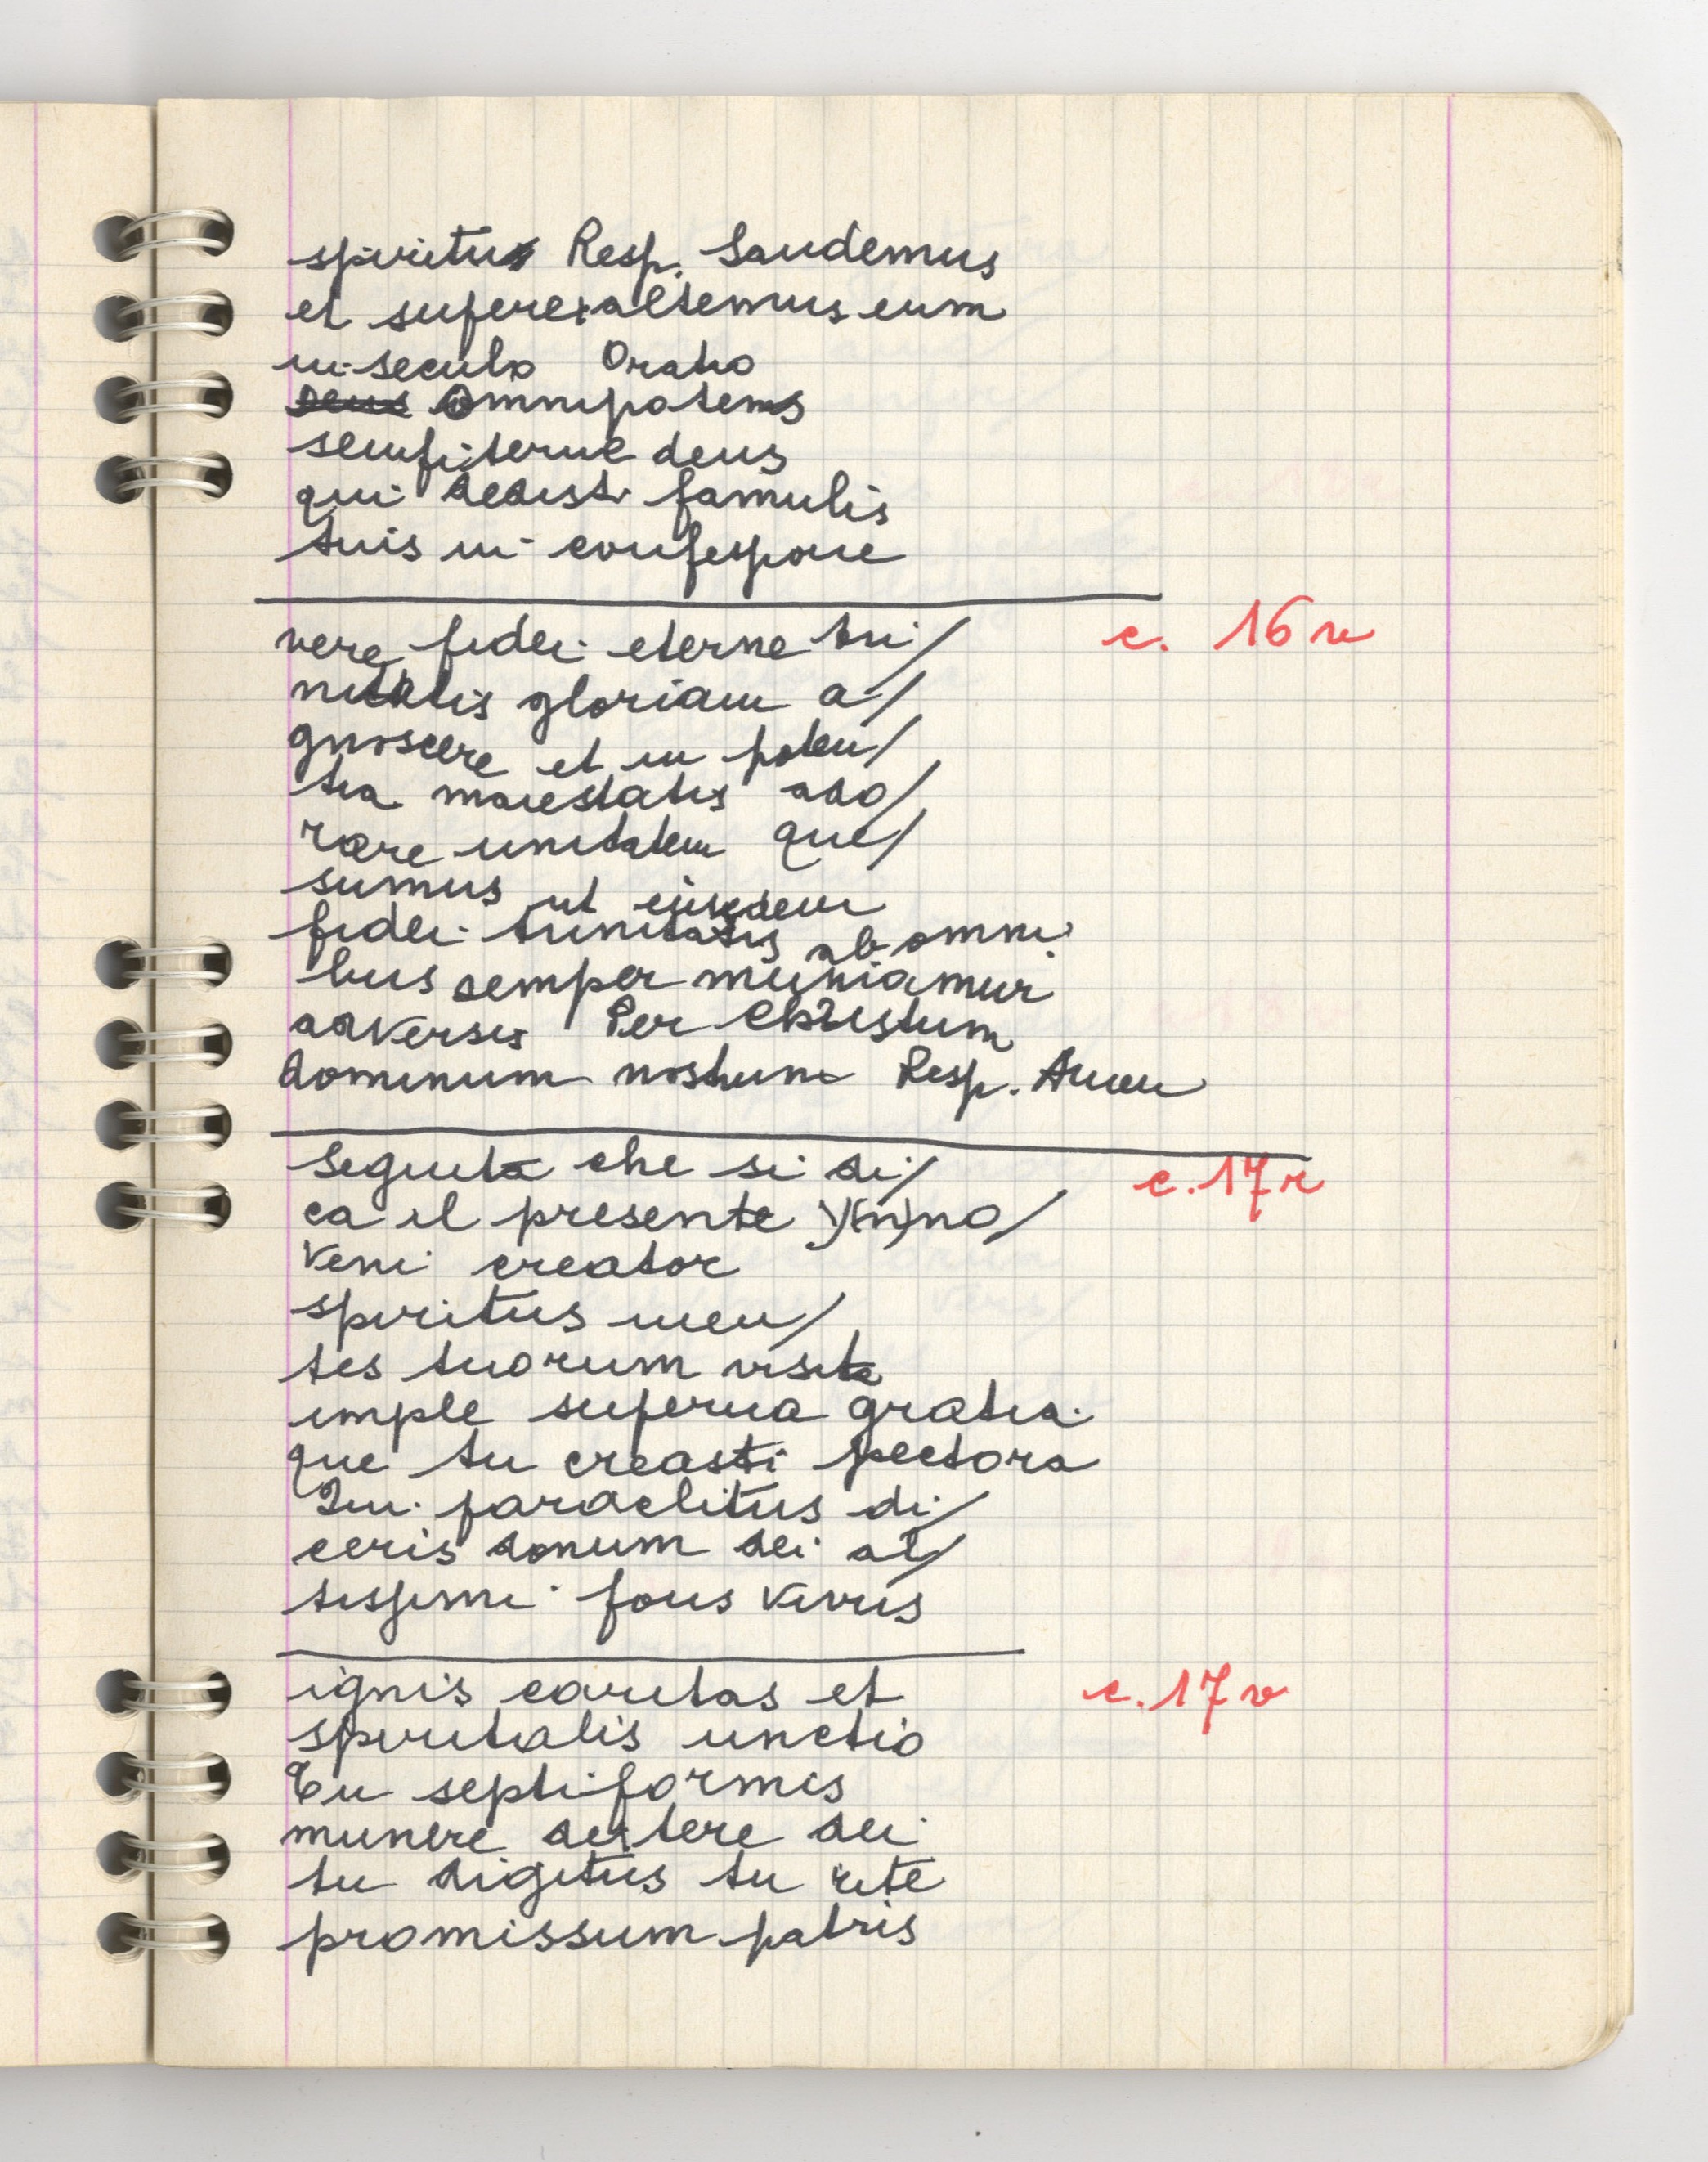 spiritu Resp. Laudemus
et superexaltemus eum
in secula Oratio
Deus Omnipotens
sempiterne deus
qui dedisti famulis
tuis in confessione
vere fidei eterne tri/ c. 16 v
nitatis gloriam a/
gnoscere et in poten/
tia maiestatis ado/
rare unitatem que/
sumus ut eiusdem
fidei trinitatis ab omni
bus semper muniamur
adversis Per Christum
dominum nostrum Resp. Amen
Seguita che si di/ c. 17 r
ca il presente y(n)no/
Veni creator
spiritus men/
tes tuorum visita
imple superna gratia
que tu creasti pectora
Qui paraclitus di/
ceris donum dei al/
tissimi fons vivus
ignis caritas et c. 17 v
spiritalis unctio
Tu septiformis
munere dextere dei
tu digitus tu rite
promissum patris